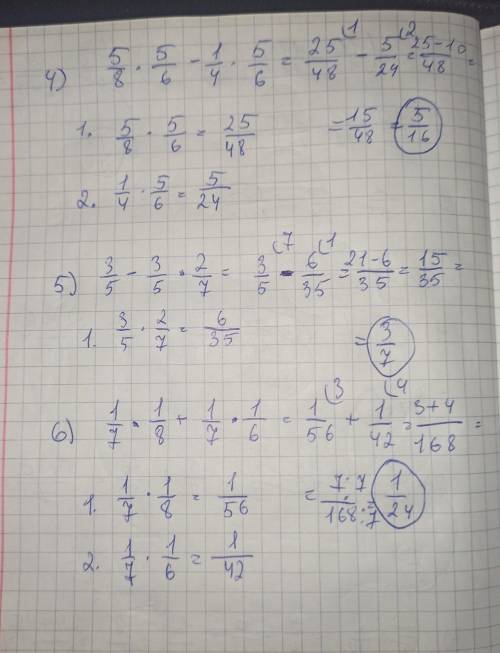 4) 5/8 · 5/6 − 1/4 · 5/6 = 25/48 (1 − 5/24 (2 = 25−10/48 =
1. 5/8 · 5/6 = 25/48 = 15/48 = 5/16
2. 1/4 · 5/6 = 5/24
5) 3/5 − 3/5 · 2/7 = 3/5 (7 − 6/35 (1 = 21−6/35 = 15/35 =
1. 3/5 · 2/7 = 6/35 = 3/7
6) 1/7 · 1/8 + 1/7 · 1/6 = 1/56 (3 + 1/42 (4 = 3+4/168 =
1. 1/7 · 1/8 = 1/56 = 7:7/168:7 = 1/24
2. 1/7 · 1/6 = 1/42